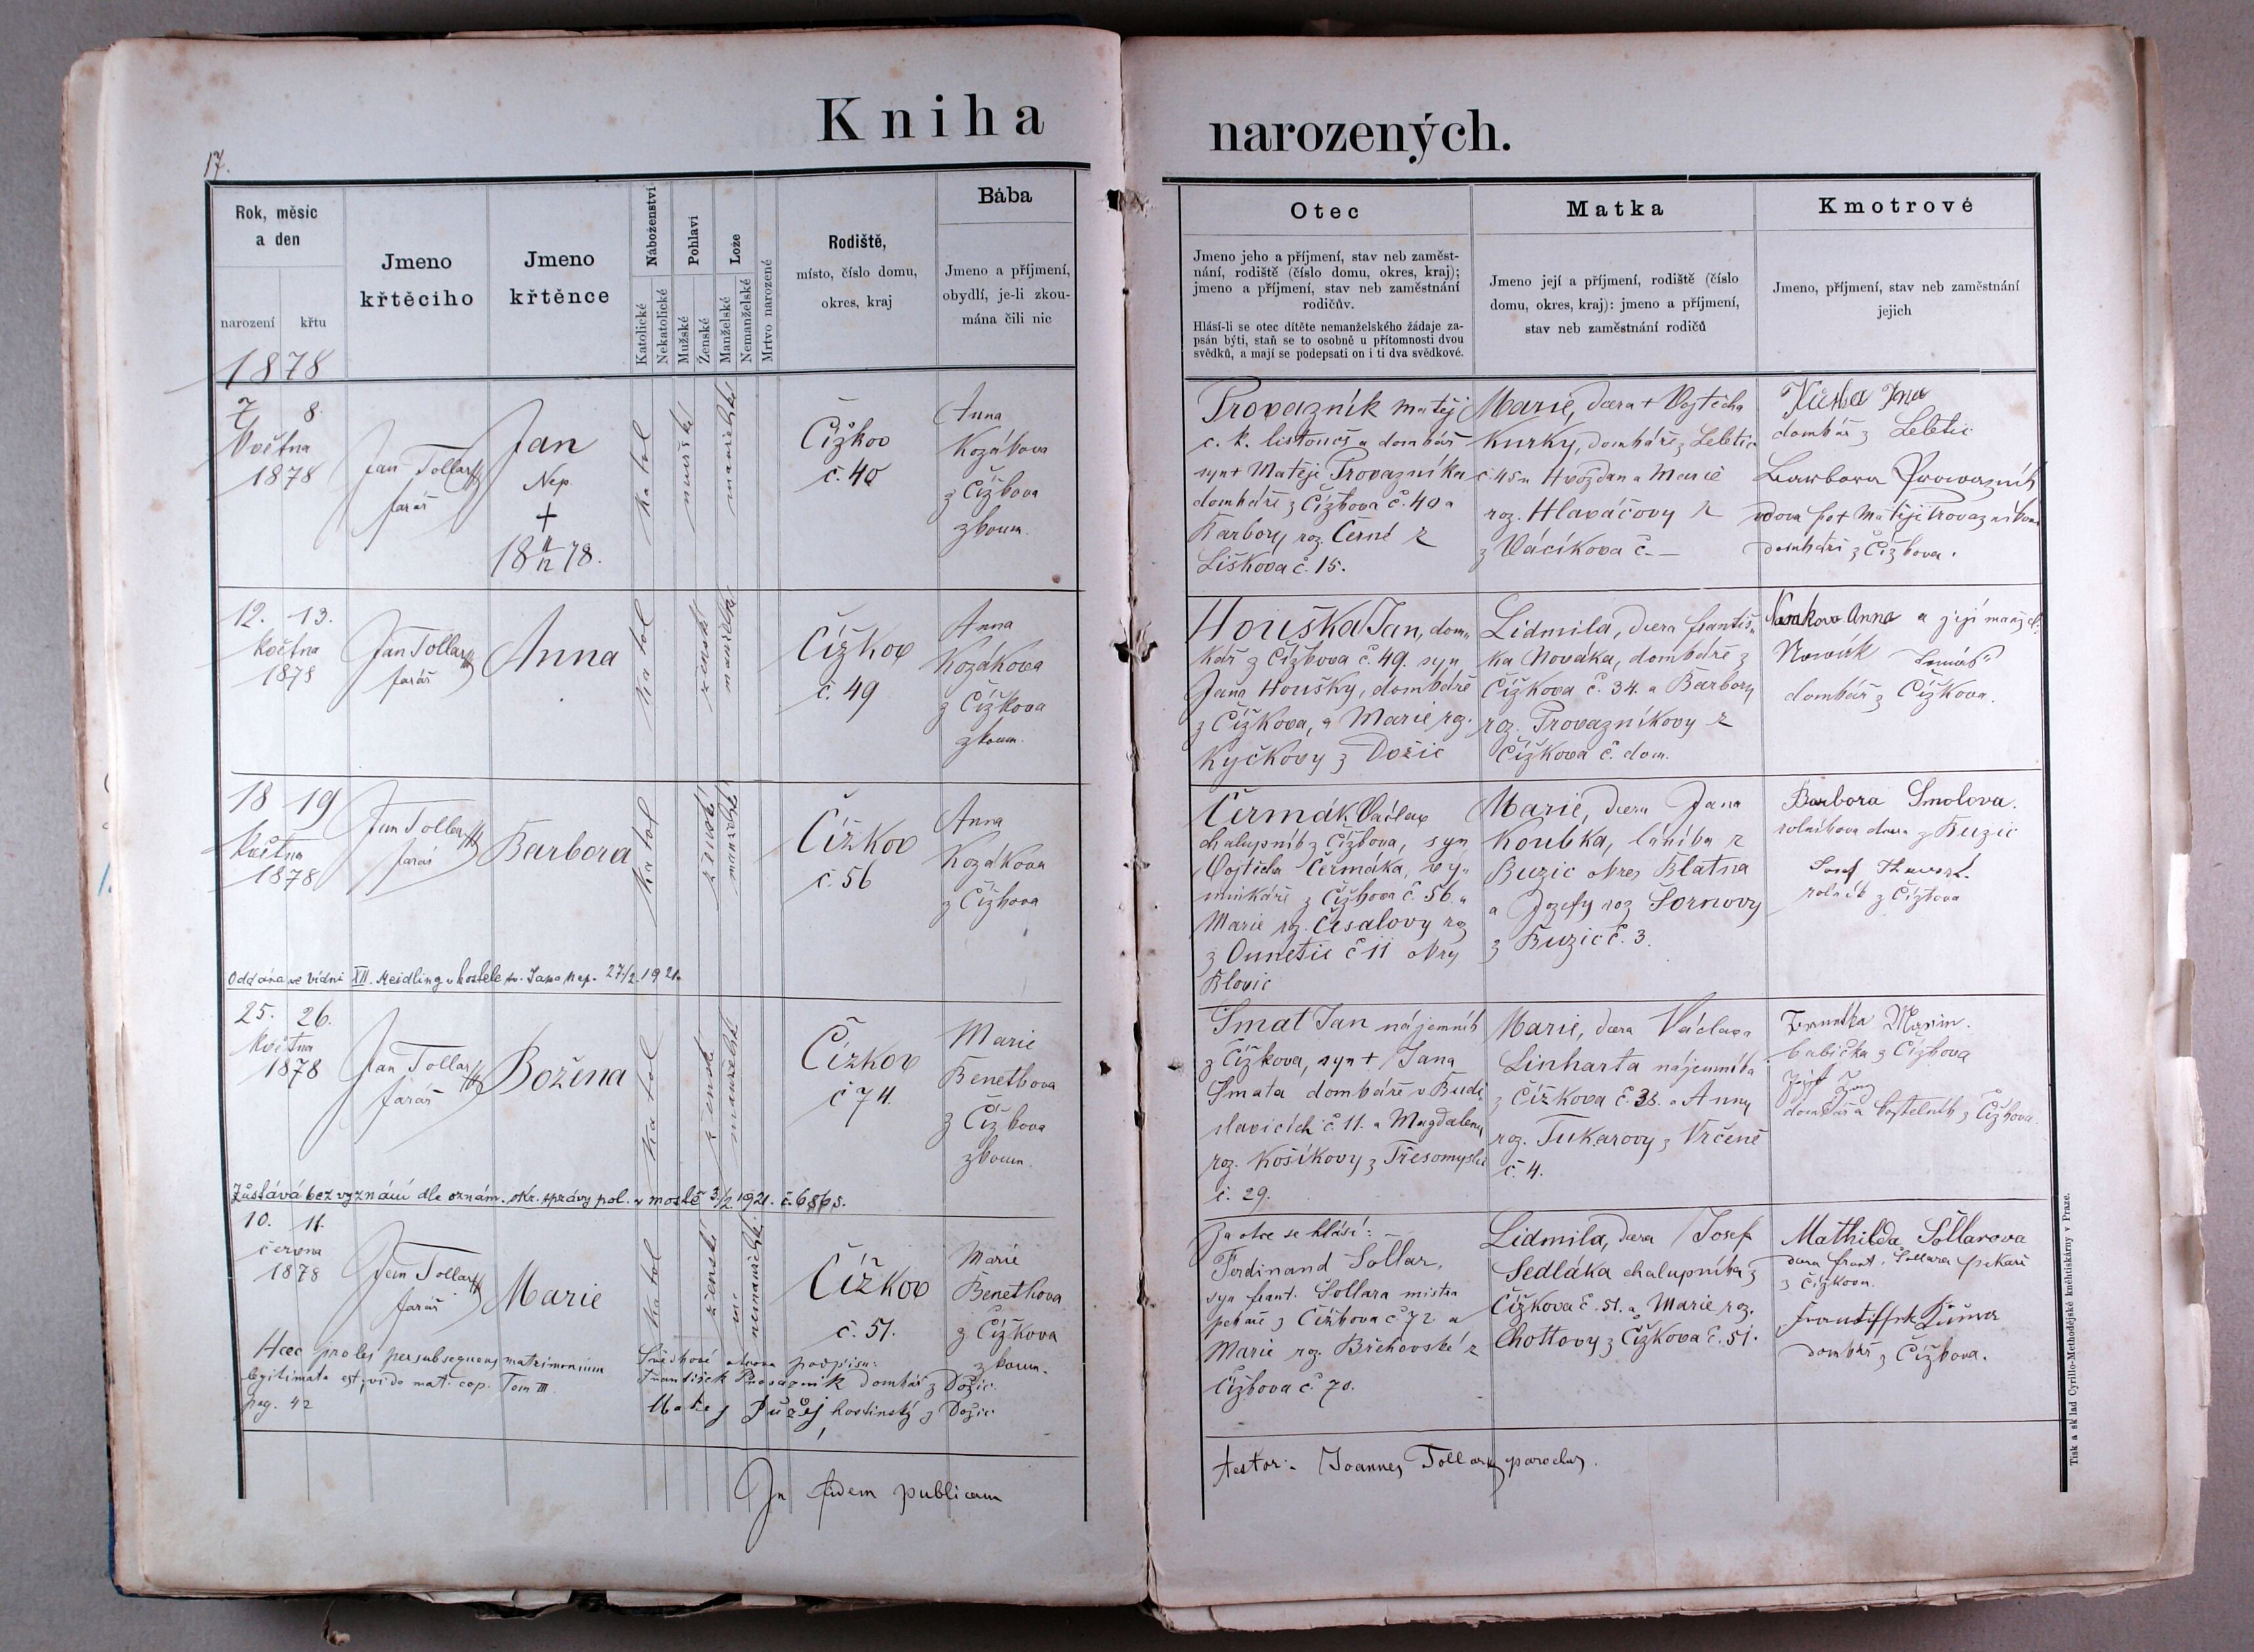 Kniha narozených.
17.
Rok, měsíc
a den
narození křtu
Jmeno
křtěcího
Jmeno
křtěnce
Náboženství
Katolické
Nekatolické
Pohlaví
Mužské
Ženské
Lože
Manželské
Nemanželské
Mrtvo narozené
Rodiště,
místo, číslo domu,
okres, kraj
Bába
Jmeno a příjmení,
obydlí, je-li zkou-
mána čili nic
Otec
Jmeno jeho a příjmení, stav neb zaměst-
nání, rodiště (číslo domu, okres, kraj);
jmeno a příjmení, stav neb zaměstnání
rodičův.
Hlásí-li se otec dítěte nemanželského žádaje za-
psán býti, staň se to osobně u přítomnosti dvou
svědků, a mají se podepsati on i ti dva svědkové.
Matka
Jmeno její a příjmení, rodiště (číslo
domu, okres, kraj): jmeno a příjmení,
stav neb zaměstnání rodičů
Kmotrové
Jmeno, příjmení, stav neb zaměstnání
jejich
1878
7 8.
Května
1878
Jan Tollar
farář
Jan
Nep.
+
18 78.
katol
mužské
manželské
Čížkov
č. 40
Anna
Kozákova
z Čížkova
zkoum.
Provazník Matěj
c. k. listonoš a domkář
syn + Matěje Provazníka
domkáře z Čížkova č. 40 a
Barbory roz. Černé z
Liškova č. 15.
Marie, dcera + Vojtěcha
Kurky, domkáře z Letetic
č. 45 u Hvožďan a Marie
roz. Hlaváčovy z
z Vácíkova č. —
domkář z Letetic
Barbora Provazník
vdova po + Matěji Provazníkovi
domkáři z Čížkova.
12. 13.
Května
1878
Jan Tollar
farář
Anna
katol
ženské
manželské
Čížkov
č. 49
Anna
Kozákova
z Čížkova
zkoum.
Houška Jan, dom-
kář z Čížkova č. 49. syn
Jana Houšky, domkáře
z Čížkova, a Marie roz.
Kyčkovy z Dožic
Lidmila, dcera Františ-
ka Nováka, domkáře z
Čížkova č. 34. a Barbory
roz. Provazníkovy z
Čížkova č. dom.
Novakova Anna a její manžel
Nowák Tomáš
domkář z Čížkova.
18 19
Května
1878
Jan Tollar
farář
Barbora
katol
ženské
manželské
Čížkov
č. 56
Anna
Kozákova
z Čížkova
Čermák Václav
chalupník z Čížkova, syn
Vojtěcha Čermáka, vý-
minkáře z Čížkova č. 56. a
Marie roz. Česalovy roz
z Ounětic č 11 okres
Blovic
Marie, dcera Jana
Koubka, láníka z
Buzic okres Blatna
a Josefy roz Šornovy
z Buzic č. 3.
Barbora Smolova.
rolníkova dcera z Buzic
Josef
rolník z Čížkova
Oddána ve Vídni XII. Meidling v kostele sv. Jana Nep. 27/2. 1921.
25. 26.
Května
1878
Jan Tollar
farář
Božena
katol
ženské
manželské
Čížkov
č 74.
Marie
Benetkova
z Čížkova
zkoum.
Smat Jan nájemník
z Čížkova, syn + Jana
Smata domkáře v Budi-
slavicích č. 11. a Magdaleny
roz. Košíkovy z Třesomyslic
č. 29.
Marie, dcera Václava
Linharta nájemníka
z Čížkova č. 38. a Anny
roz. Tukarovy z Vrčeně
č. 4.
babička z Čížkova
domkář a kostelník z Čížkova.
Zůstává bez vyznání dle oznám. okr. správy pol. v Mostě 3/2 1921. č. 6868.
10. 11.
června
1878
Jan Tollar
farář
Marie
katol
ženské
nemanželské
Čížkov
č. 51.
Marie
Benetkova
z Čížkova
zkoum.
Za otce se hlásí: —
Ferdinand Šollar,
syn Frant. Šollara mistra
pekaře z Čížkova č 72 a
Marie roz. Břehovské z
Čížkova č. 70.
Lidmila, dcera Josefa
Sedláka chalupníka z
Čížkova č. 51. a Marie roz.
Chottovy z Čížkova č. 51.
Mathilda Šollarova
dcera Frant. Šollara pekaře
z Čížkova.
domkář z Čížkova.
Haec proles per subsequens matrimonium
legitimata est, vide mat. cop. Tom III.
pag. 42
Svědkové otcova podpisu:
František Provazník domkář z Dožic.
Matěj hostinský z Dožic
In fidem publicam
testor: Joannes Tollar parochus.
Tisk a sklad Cyrillo-Methodějské knihtiskárny v Praze.